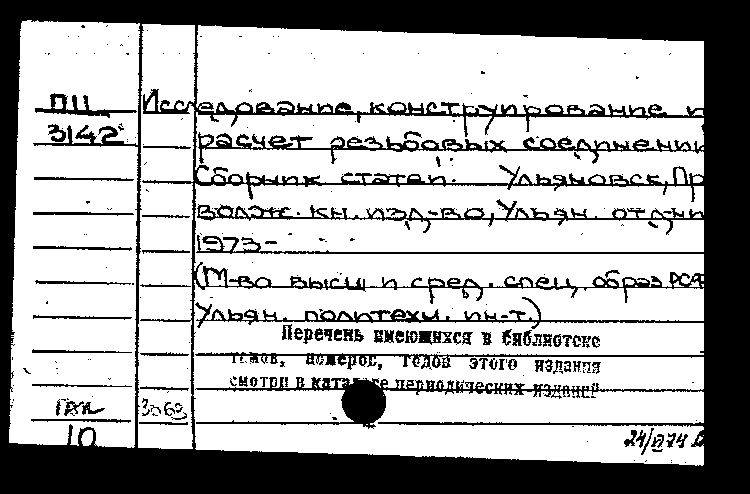 ПII Исследование, конструирование и
3142 расчет резьбовых соединений
Сборник статей. Ульяновск, При
волж. кн. изд-во, Ульян. отд-ни
1973-
(М-во высш и сред. спец. образ РСФ
Ульян. политехн. ин-т.)
Перечень имеющихся в библиотеке
томов, номеров, годов этого издания
смотри в каталоге периодических изданий
3068
10
24/VI 74